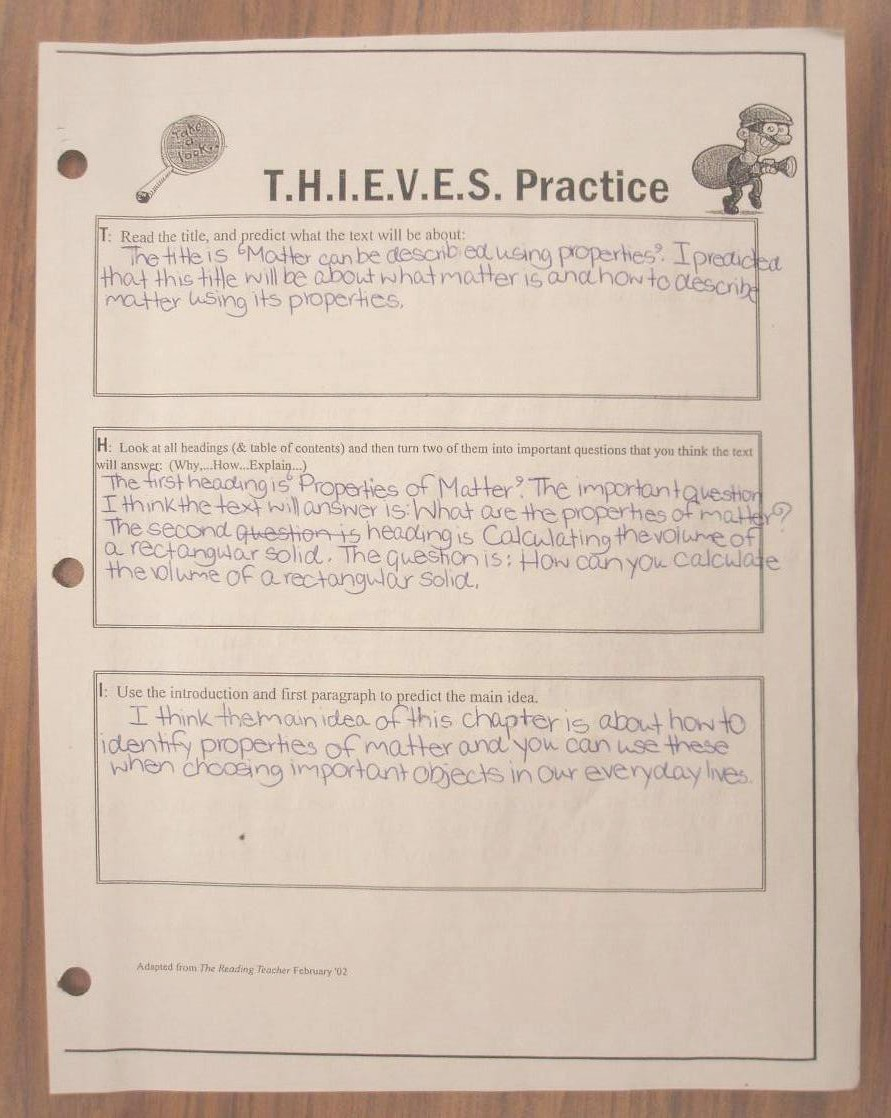 Take
a
look...
T.H.I.E.V.E.S. Practice
T: Read the title, and predict what the text will be about:
The title is "Matter can be described using properties". I predicted
that this title will be about what matter is and how to describe
matter using its properties.
H: Look at all headings (& table of contents) and then turn two of them into important questions that you think the text
will answer: (Why,...How...Explain...)
The first heading is "Properties of Matter". The important question
I think the text will answer is: What are the properties of matter?
The second question is heading is Calculating the volume of
a rectangular solid. The question is: How can you calculate
the volume of a rectangular solid.
I: Use the introduction and first paragraph to predict the main idea.
I think the main idea of this chapter is about how to
identify properties of matter and you can use these
when choosing important objects in our everyday lives.
Adapted from The Reading Teacher February '02